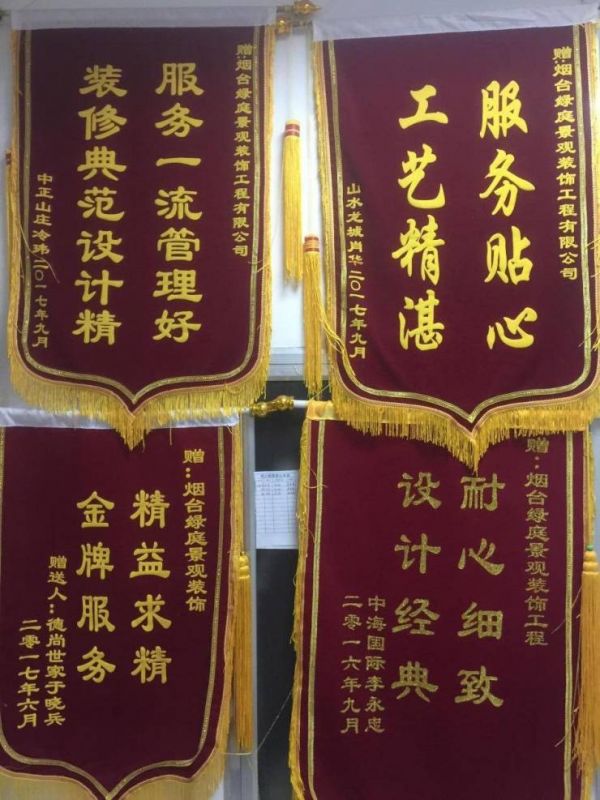 赠:烟台绿庭景观装饰工程有限公司
服务一流管理好
装修典范设计精
中正山庄冷玮二〇一七年九月
赠:烟台绿庭景观装饰工程有限公司
服务贴心
工艺精湛
山水龙城肖华二〇一七年九月
赠:烟台绿庭景观装饰
精益求精
金牌服务
赠送人:德尚世家于晓兵
二零一七年六月
赠:烟台绿庭景观装饰工程
耐心细致
设计经典
中海国际李永忠
二零一六年九月